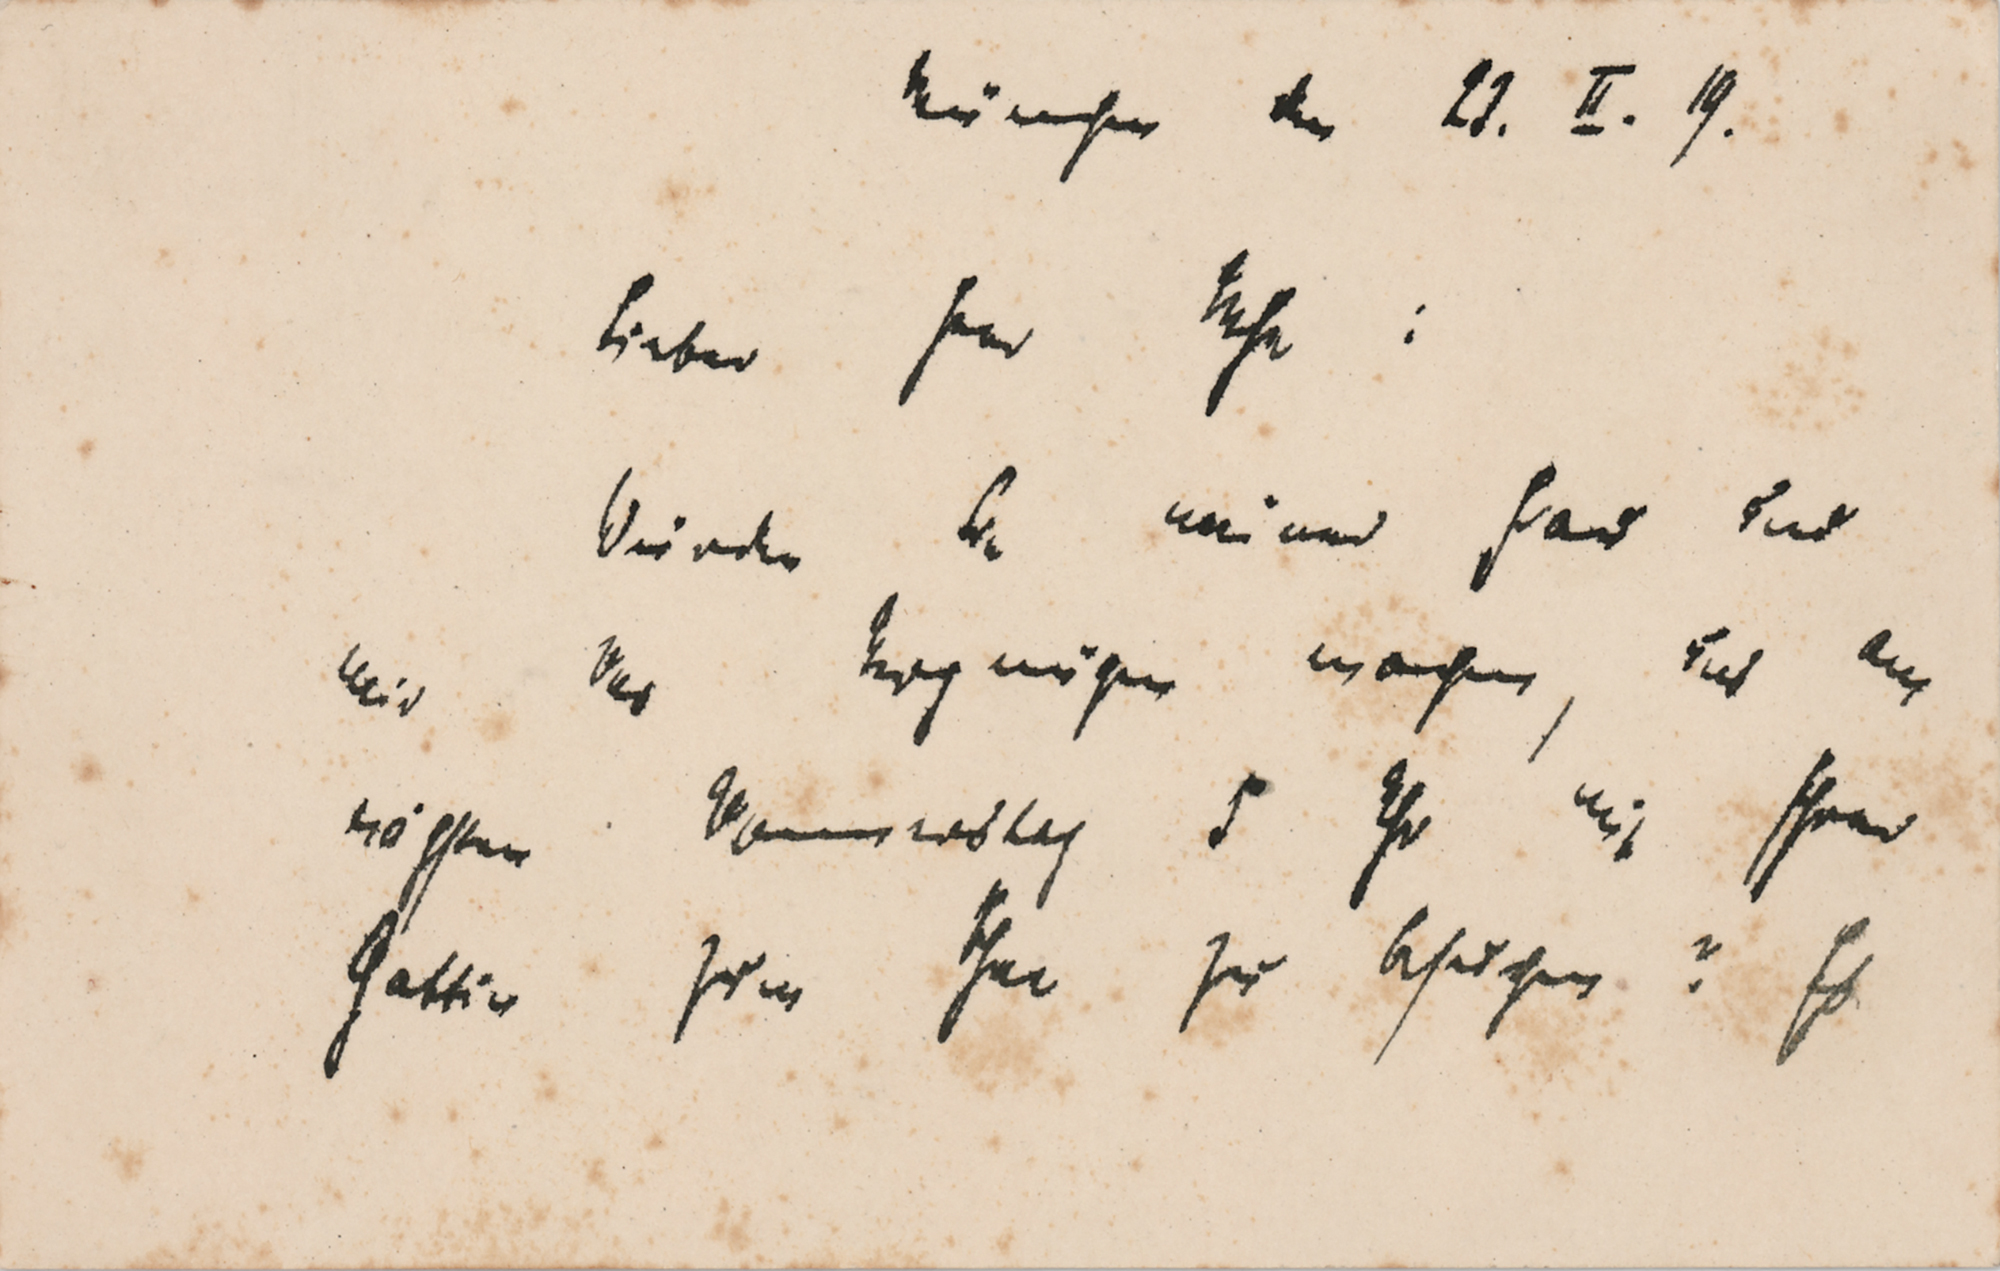 München den 22. II. 19.
Lieber Herr
Würden Sie meiner Frau und
mir das Vergnügen machen, uns am
nächsten Donnerstag 5 Uhr mit Ihrer
Gattin zum Thee zu besuchen? Es